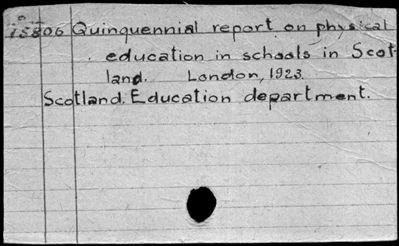 15806 Quinquennial report on physical
education in schools in Scot-
land. London, 1923.
Scotland. Education department.